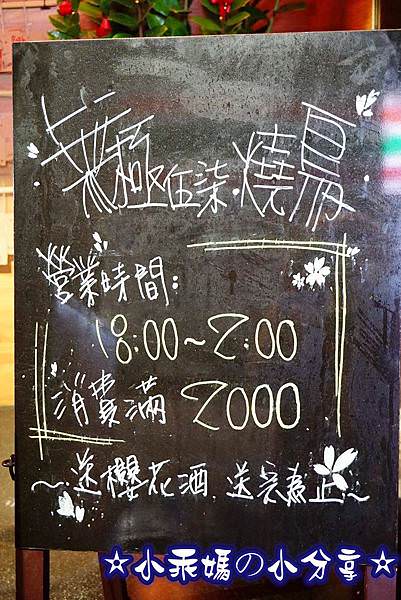 極伍柒.燒鳥
營業時間:
18:00~2:00
消費滿 2000
~送櫻花酒.送完為止~
☆小乖媽の小分享☆